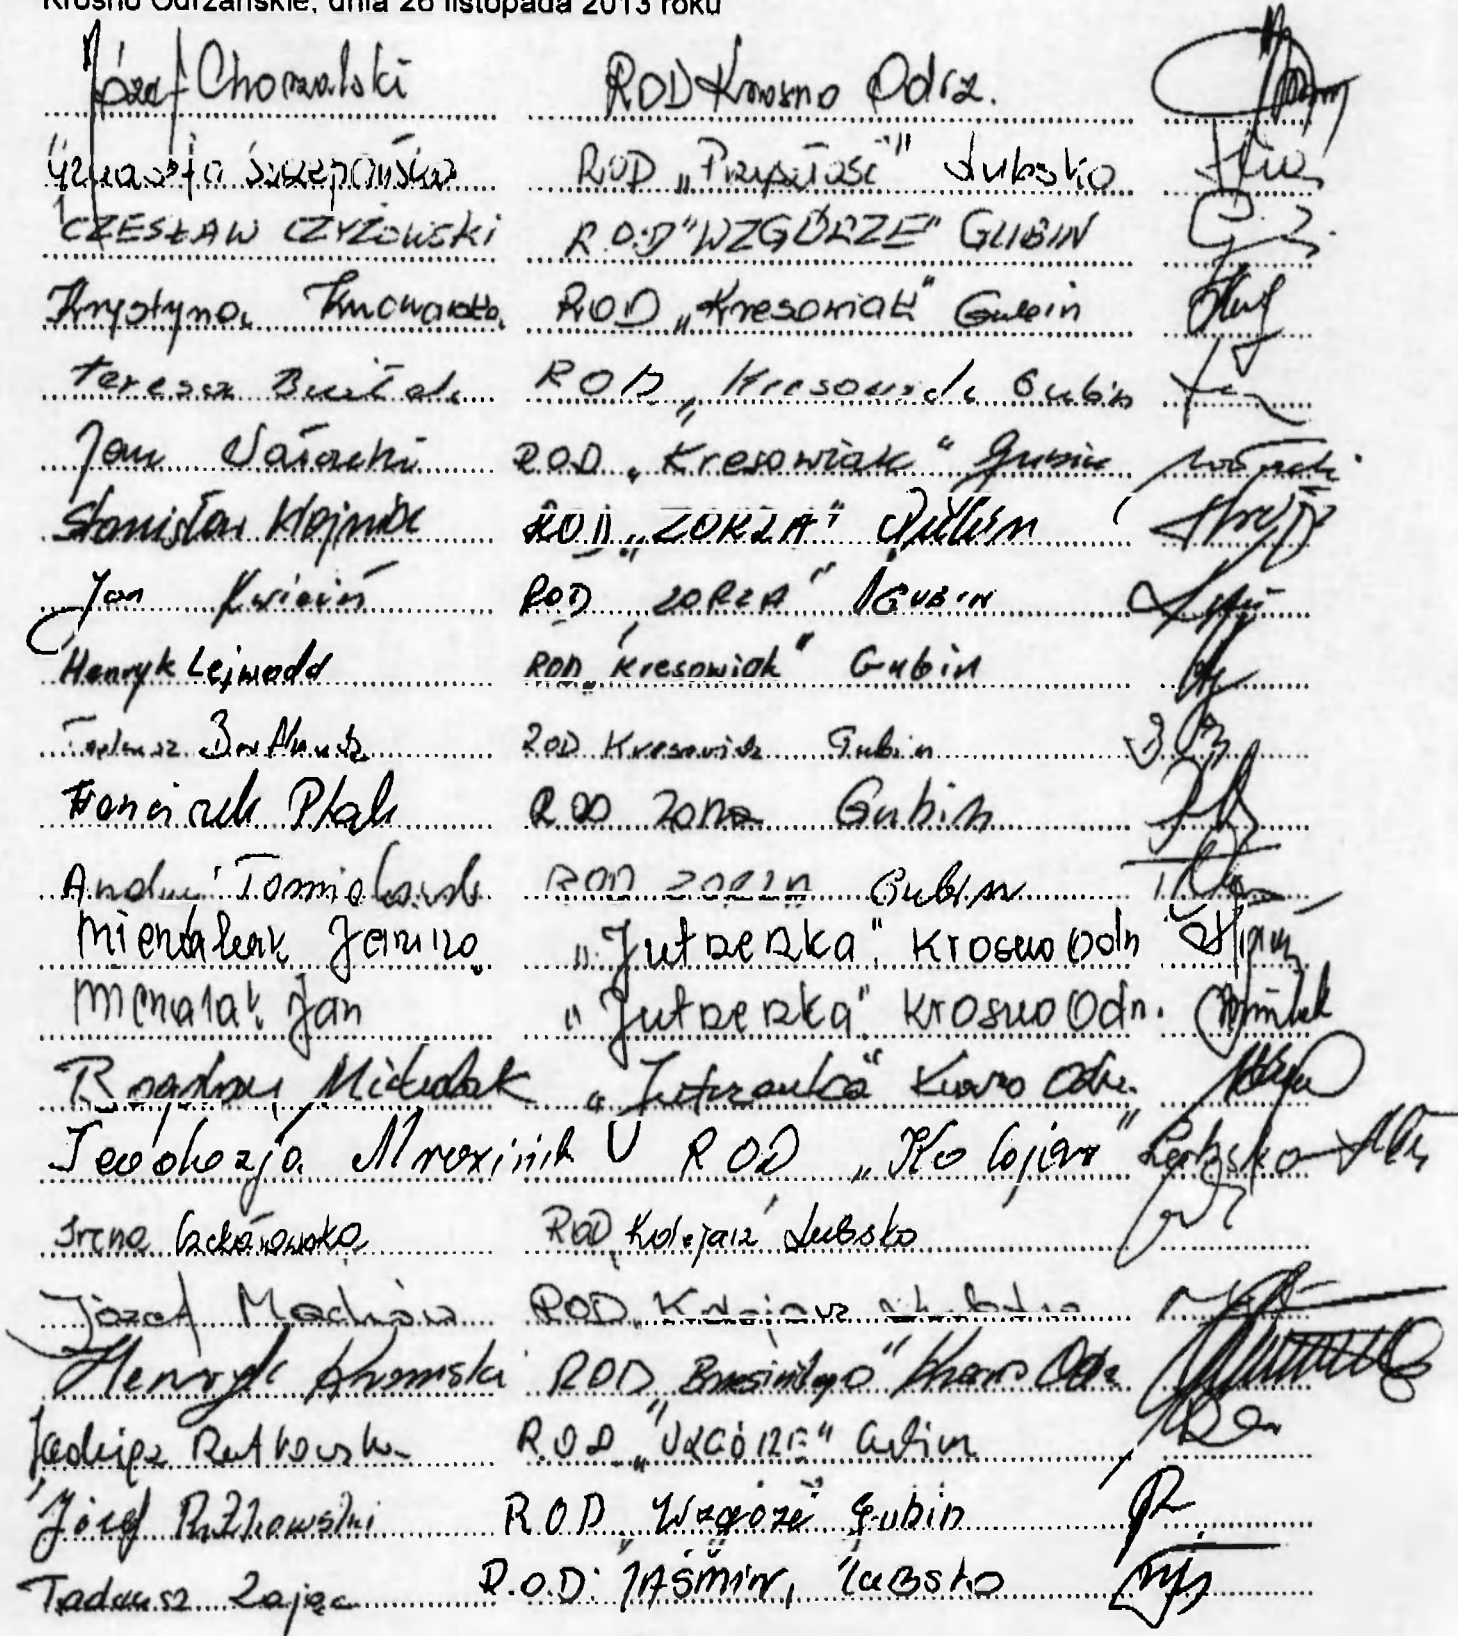 Krosno Odrzańskie, dnia 26 listopada 2013 roku
Józef Chorzalski ROD Krosno Odrz.
Szczepańska ROD „Przyszłość" Lubsko
CZESŁAW CZYŻOWSKI R.O.D "WZGÓRZE" GUBIN
Krystyna ROD „Kresowiak" Gubin
Teresa ROD „Kresowiak Gubin
Jan ROD „Kresowiak" Gubin
Stanisław Wojnik ROD „ZORZA" Gubin
Jan Kwiecień ROD „ZORZA" GUBIN
Henryk Lejwoda ROD „Kresowiak" Gubin
Tadeusz ROD Kresowiak Gubin
Franciszek Ptak ROD Zorza Gubin
Andrzej ROD ZORZA Gubin
Janina „Jutrzenka" Krosno Odrz
Michalak Jan „Jutrzenka" Krosno Odrz.
Bogdan Michalak „Jutrzenka" Krosno Odrz.
Teodozja ROD „Kolejarz" Lubsko
Irena ROD Kolejarz Lubsko
Józef ROD Kolejarz Lubsko
Henryk ROD Krosno Odrz
Jadwiga Rutkowska R.O.D „WZGÓRZE" Gubin
Józef Rutkowski R.O.D „Wzgóże" Gubin
Tadeusz Zając R.O.D. JAŚMIN, Lubsko